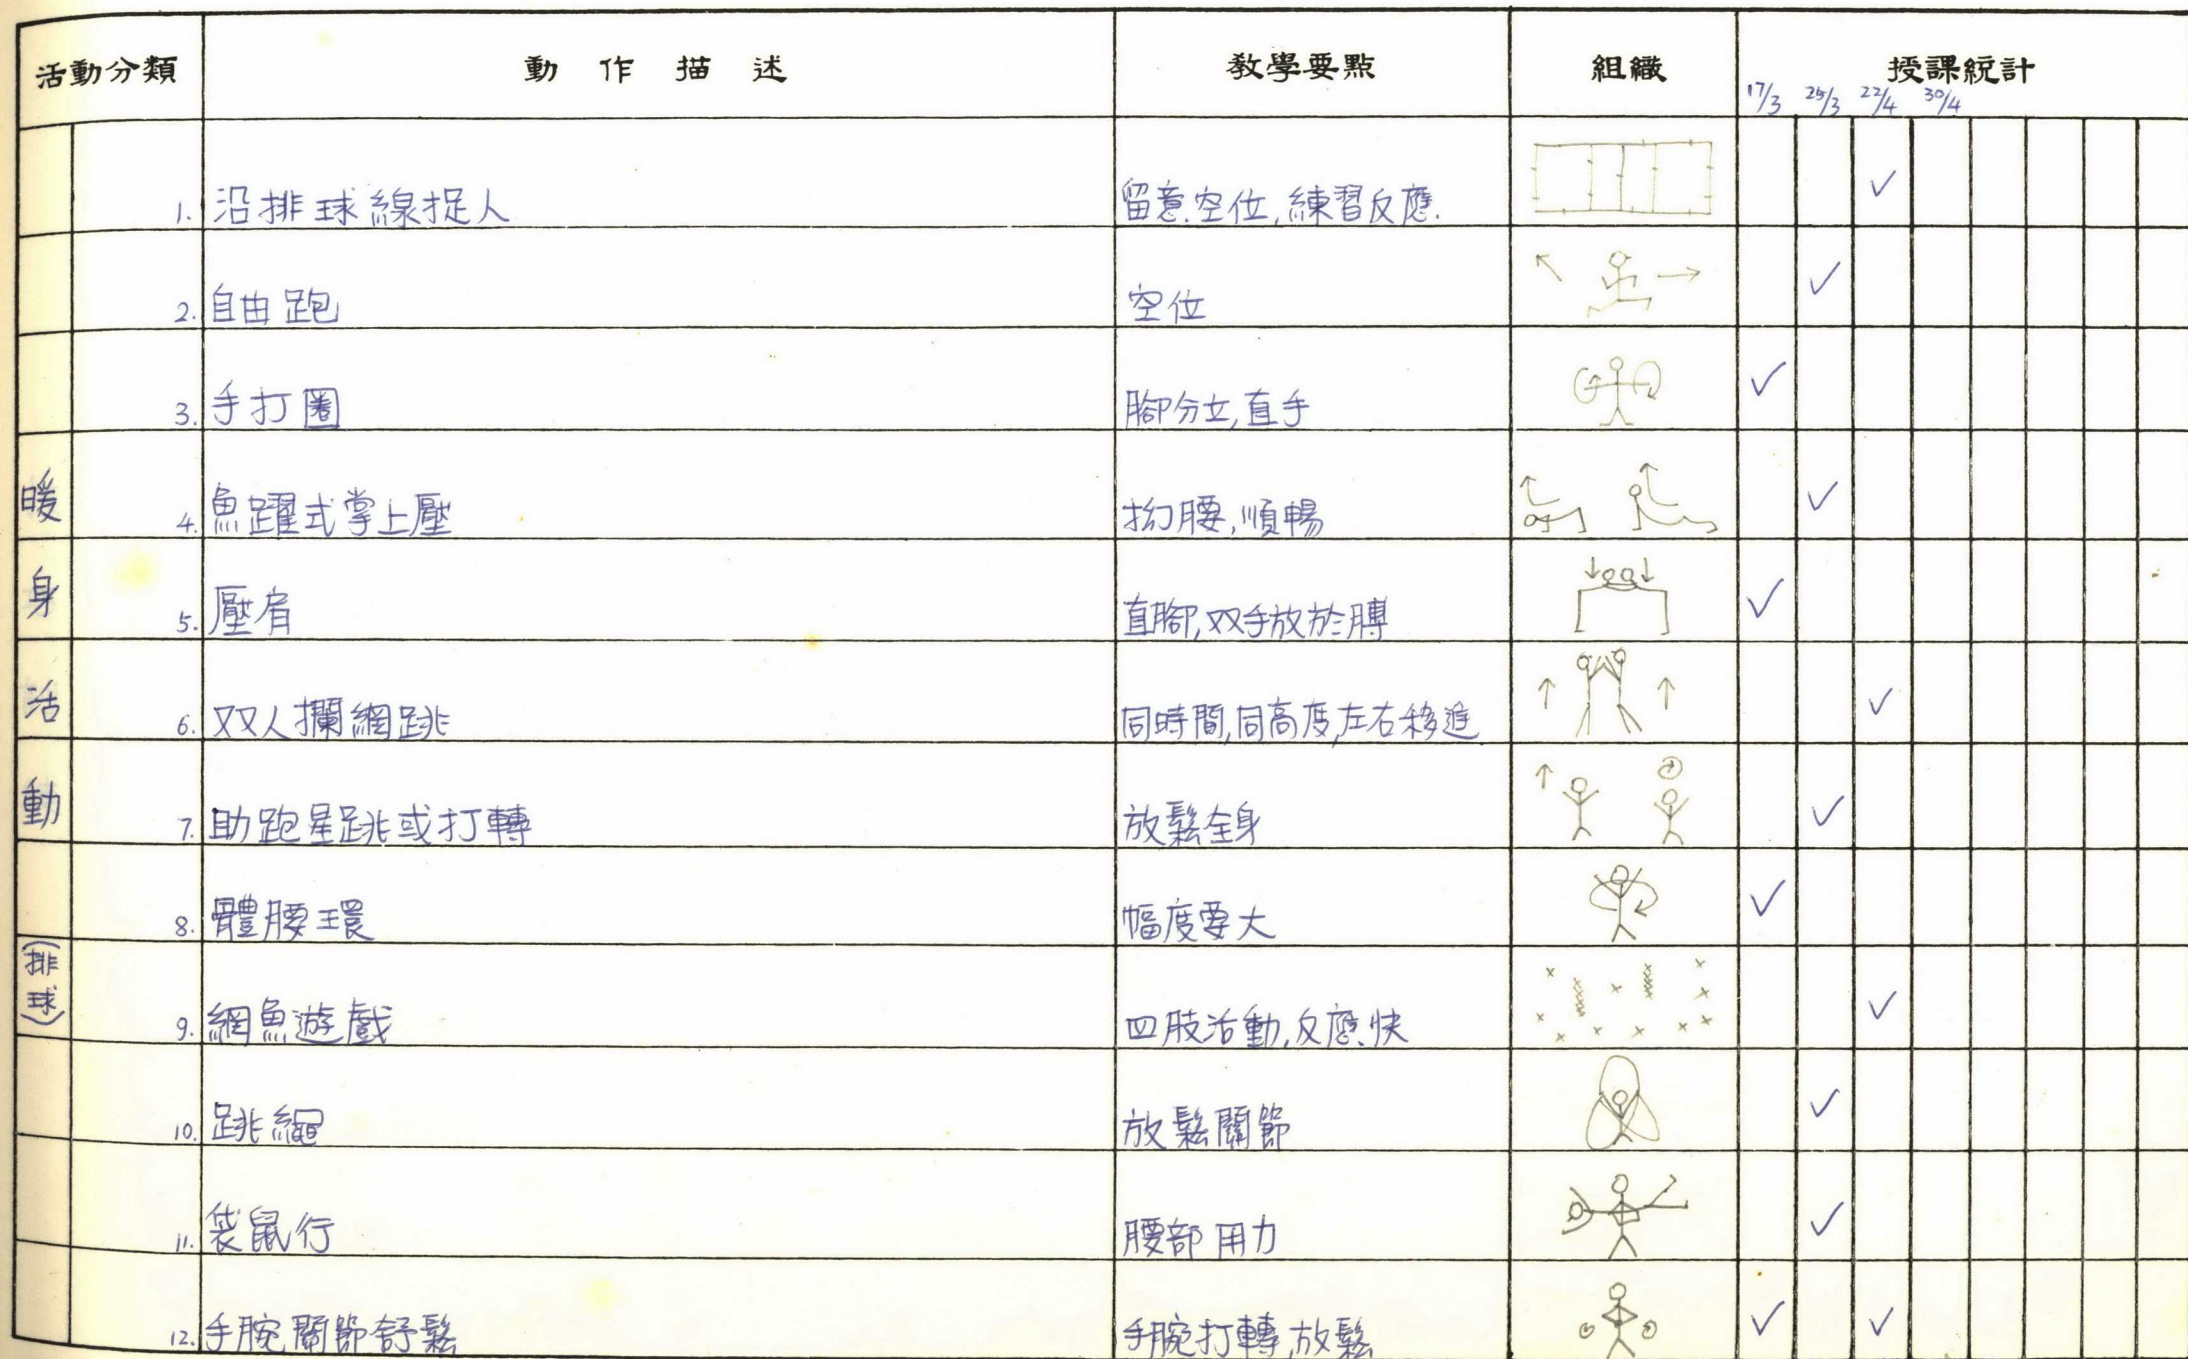 活動分類 動作描述 教學要點 組織 授課統計
17/3 25/3 22/4 30/4
暖身活動(排球)
1. 沿排球線捉人 留意空位,練習反應. ✓
2. 自由跑 空位 ✓
3. 手打圈 腳分立,直手 ✓
4. 魚躍式掌上壓 拗腰,順暢 ✓
5. 壓肩 直腳,双手放於膊 ✓
6. 双人攔網跳 同時間,同高度,左右移進 ✓
7. 助跑星跳或打轉 放鬆全身 ✓
8. 體腰環 幅度要大 ✓
9. 網魚遊戲 四肢活動,反應快 ✓
10. 跳繩 放鬆關節 ✓
11. 袋鼠行 腰部用力 ✓
12. 手腕關節舒鬆 手腕打轉,放鬆 ✓ ✓